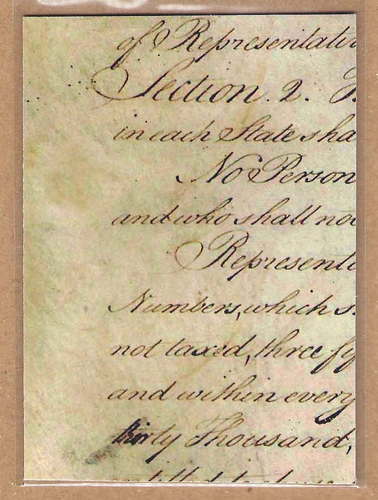 of Representati
Section. 2.
in each State sha
No Person
and who shall no
Represent
Numbers, which s
not taxed, three fi
and within every
thirty Thousand,